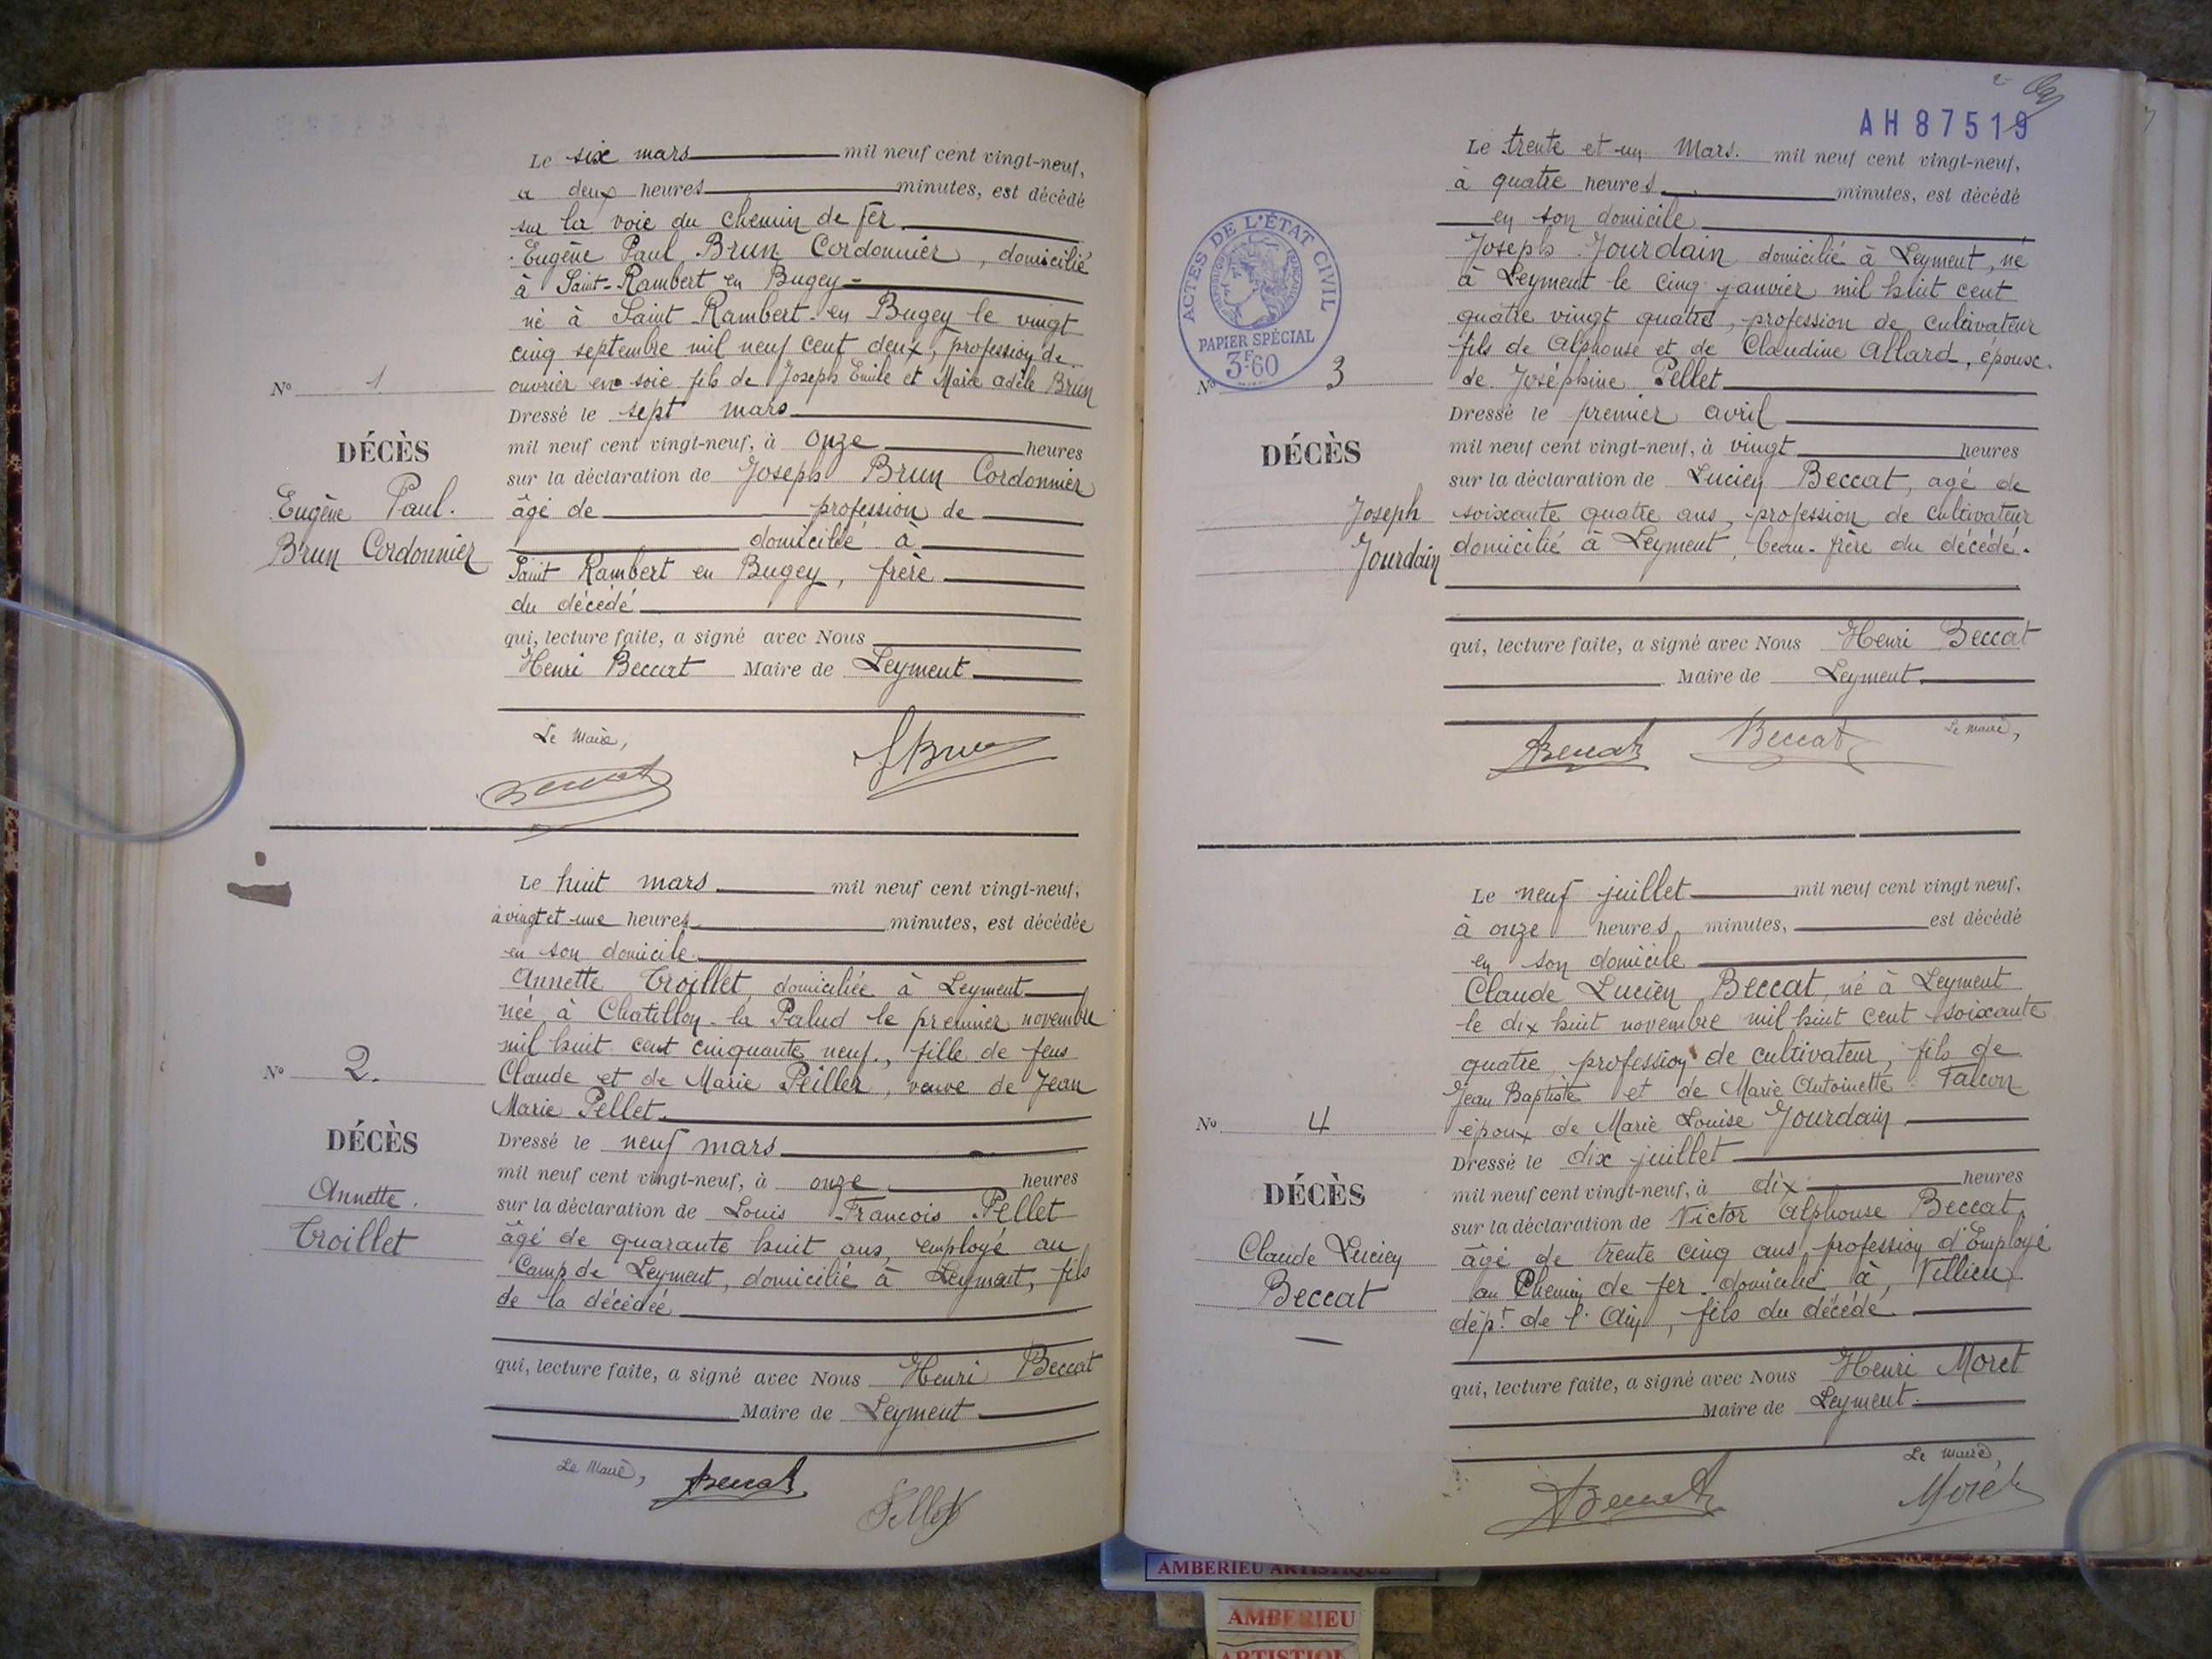 Le six mars mil neuf cent vingt-neuf,
a deux heures minutes, est décédé
sur la voie du chemin de fer.
Eugène Paul Brun Cordonnier, domicilié
à Saint-Rambert en Bugey
né à Saint-Rambert-en Bugey le vingt
cinq septembre mil neuf cent deux, profession de
ouvrier en soie fils de Joseph Emile et Marie adèle Brun
Nº 1
Dressé le sept mars
mil neuf cent vingt-neuf, à onze heures
DÉCÈS
sur la déclaration de Joseph Brun Cordonnier
Eugène Paul.
âgé de profession de
Brun Cordonnier
domicilié à
Saint Rambert en Bugey, frère
du décédé
qui, lecture faite, a signé avec Nous
Henri Beccat Maire de Leyment
Le Maire,
Beccat
JBrun
Le huit mars mil neuf cent vingt-neuf,
à vingt et une heures minutes, est décédée
en son domicile
Annette Troillet domiciliée à Leyment
née à Chatillon-la Palud le premier novembre
mil huit cent cinquante neuf., fille de feus
Nº 2.
Claude et de Marie Peiller, veuve de Jean
Marie Pellet.
DÉCÈS
Dressé le neuf mars
mil neuf cent vingt-neuf, à onze heures
Annette.
sur la déclaration de Louis Francois Pellet
Troillet
âgé de quarante huit ans, employé au
Camp de Leyment, domicilié à Leyment, fils
de la décédée
qui, lecture faite, a signé avec Nous Henri Beccat
Maire de Leyment
Le Maire,
Beccat
Pellet
2
AH87519
Le trente et un Mars. mil neuf cent vingt-neuf,
à quatre heures minutes, est décédé
en son domicile
Joseph Jourdain domicilié à Leyment, né
à Leyment le cinq janvier mil huit cent
quatre vingt quatre, profession de cultivateur
fils de Alphonse et de Claudine Allard, épouse
de Joséphine Pellet
ACTES DE L'ÉTAT CIVIL
PAPIER SPÉCIAL
3F60
Nº 3
Dressé le premier avril
mil neuf cent vingt-neuf, à vingt heures
DÉCÈS
sur la déclaration de Lucien Beccat, agé de
Joseph
soixante quatre ans, profession de cultivateur
Jourdain
domicilié à Leyment, beau-frère du décédé.
qui, lecture faite, a signé avec Nous Henri Beccat
Maire de Leyment.
Le maire,
Beccat
Beccat
Le neuf juillet mil neuf cent vingt neuf,
à onze heures minutes, est décédé
en son domicile
Claude Lucien Beccat, né à Leyment
le dix huit novembre mil huit cent soixante
quatre, profession de cultivateur, fils de
Jean Baptiste et de Marie Antoinette Falcon
Nº 4
époux de Marie Louise Jourdain
Dressé le dix juillet
DÉCÈS
mil neuf cent vingt-neuf, à dix heures
sur la déclaration de Victor Alphonse Beccat,
Claude Lucien
âgé de trente cinq ans, profession d'Employé
Beccat
au Chemin de fer domicilié à Villieu
dépt. de l'Ain, fils du décédé
qui, lecture faite, a signé avec Nous Henri Moret
Maire de Leyment.
Le maire,
Beccat
Moret
AMBERIEU ARTISTIQUE
AMBERIEU
ARTISTIQU